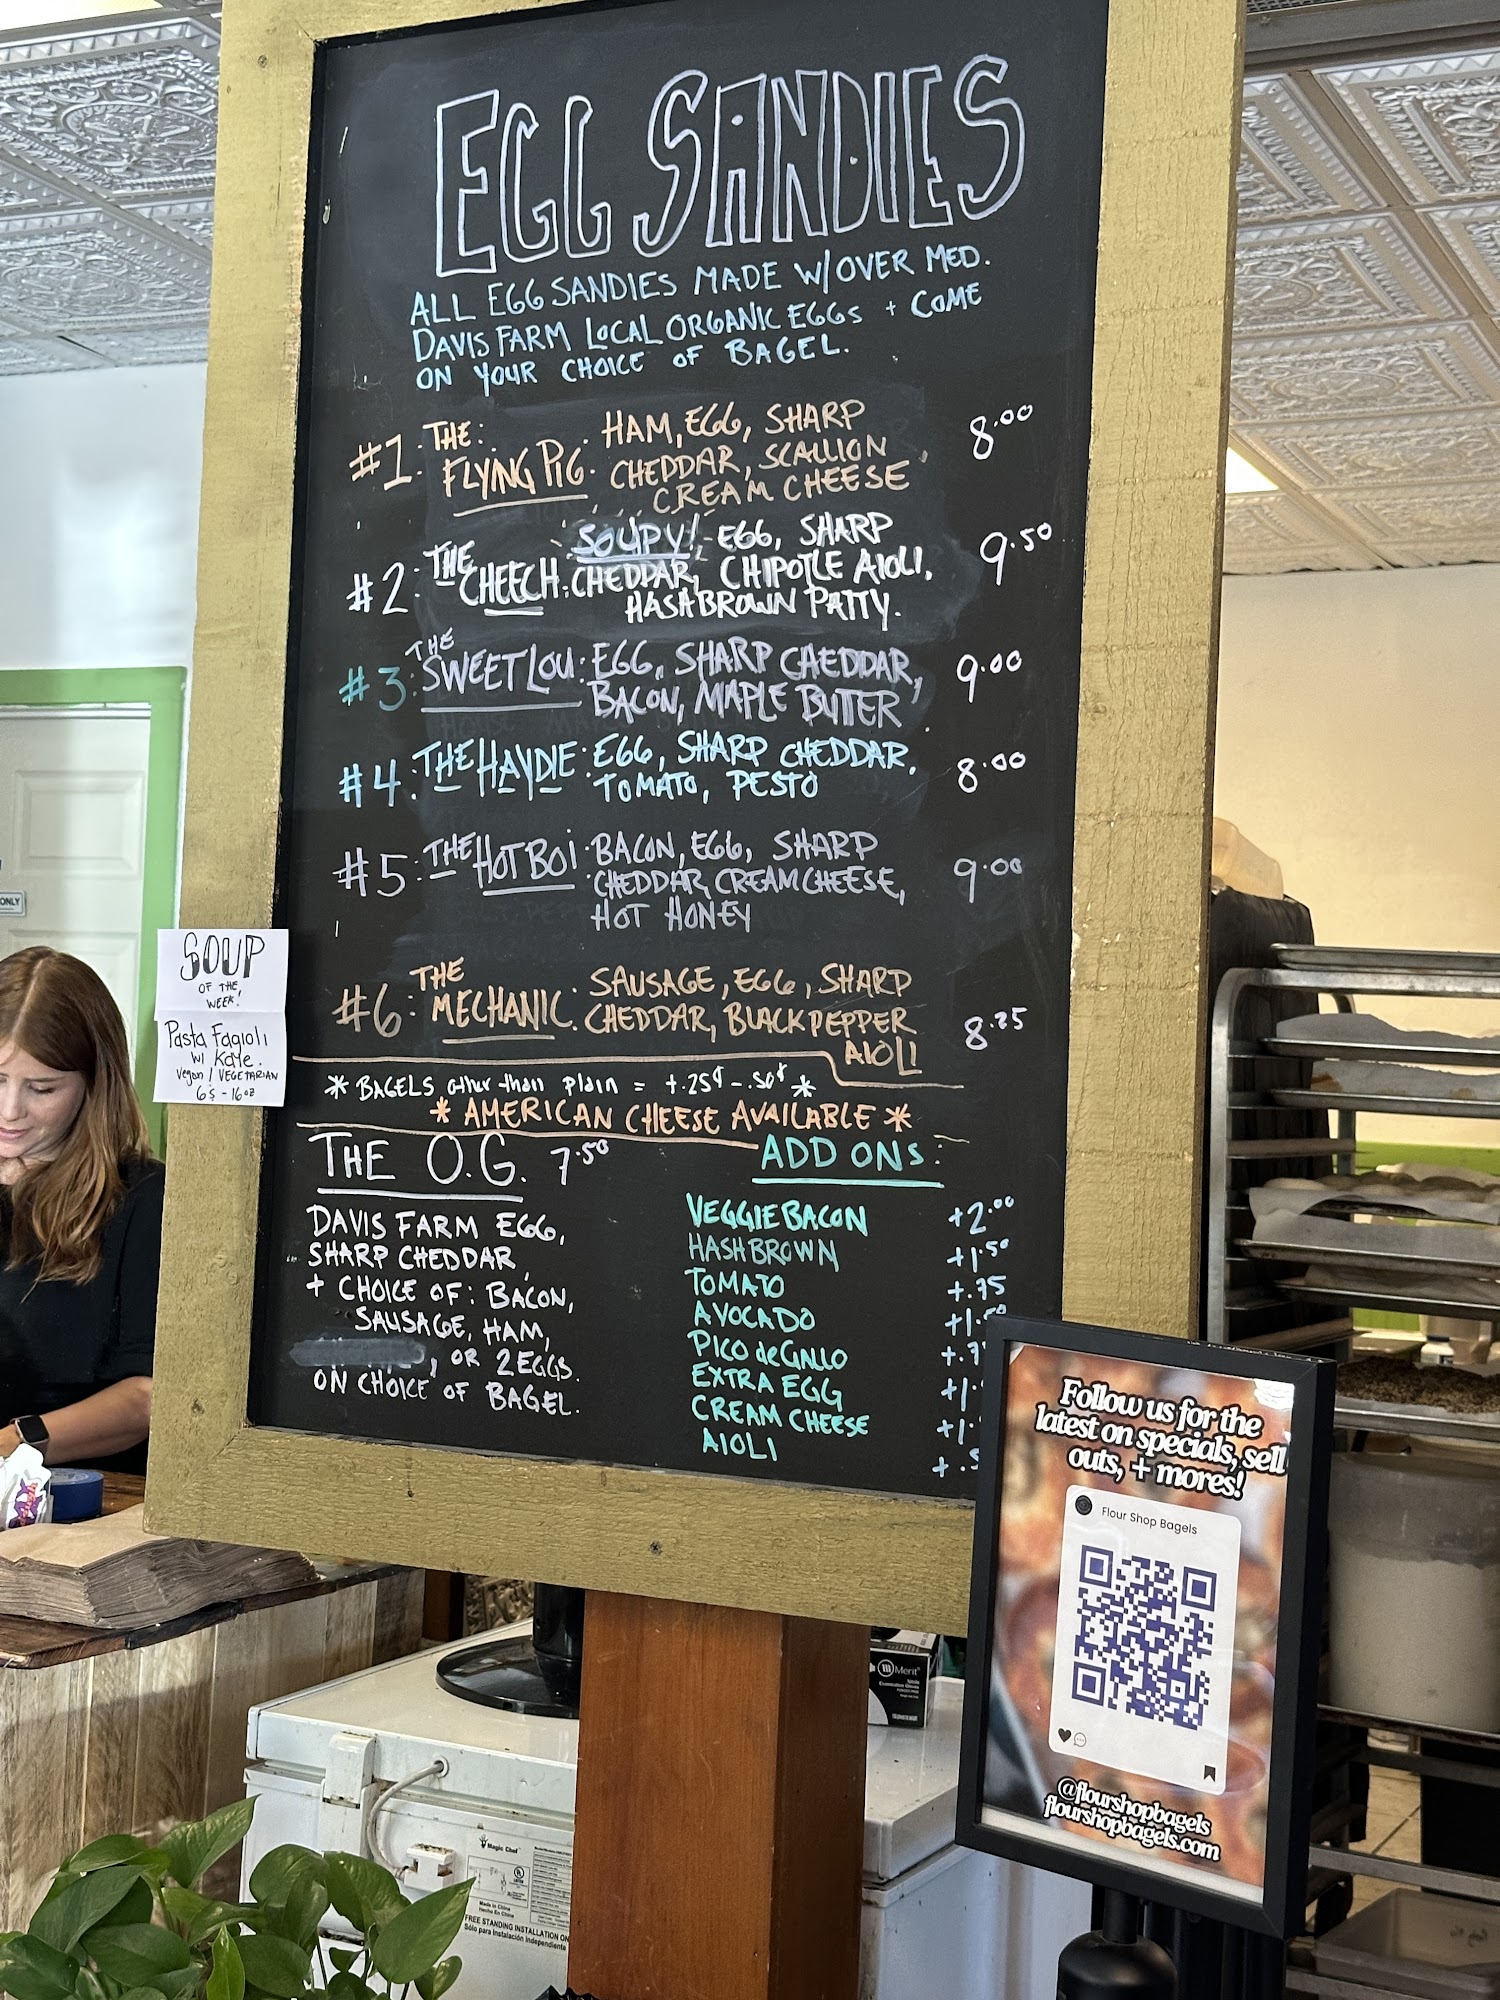 EGG SANDIES
ALL EGG SANDIES MADE W/OVER MED.
DAVIS FARM LOCAL ORGANIC EGGS + COME
ON YOUR CHOICE OF BAGEL.
#1. THE: FLYING PIG. HAM, EGG, SHARP 8.00
CHEDDAR, SCALLION
CREAM CHEESE
#2: THE CHEECH: SOUPY! EGG, SHARP 9.50
CHEDDAR, CHIPOTLE AIOLI,
HASHBROWN PATTY.
#3: THE SWEET LOU: EGG, SHARP CHEDDAR, 9.00
BACON, MAPLE BUTTER
#4: THE HAYDIE: EGG, SHARP CHEDDAR, 8.00
TOMATO, PESTO
#5: THE HOT BOi: BACON, EGG, SHARP 9.00
CHEDDAR, CREAM CHEESE,
HOT HONEY
#6: THE MECHANIC. SAUSAGE, EGG, SHARP 8.25
CHEDDAR, BLACK PEPPER
AIOLI
* BAGELS other than plain = +.25¢ - .50¢ *
* AMERICAN CHEESE AVAILABLE *
THE O.G. 7.50
DAVIS FARM EGG,
SHARP CHEDDAR
+ CHOICE OF: BACON,
SAUSAGE, HAM,
, OR 2 EGGS.
ON CHOICE OF BAGEL.
ADD ONS:
VEGGIE BACON +2.00
HASHBROWN +1.50
TOMATO +.75
AVOCADO +1.50
PICO de GALLO
EXTRA EGG
CREAM CHEESE
AIOLI
SOUP
OF THE
WEEK!
Pasta Fagioli
w/ Kale.
Vegan / VEGETARIAN
6$ - 16oz
ONLY
Follow us for the
latest on specials, sell
outs, + mores!
Flour Shop Bagels
@flourshopbagels
flourshopbagels.com
Merit
Magic Chef
Made in China
Hecho En China
FREE STANDING INSTALLATION ON
Sólo para Instalación Independiente